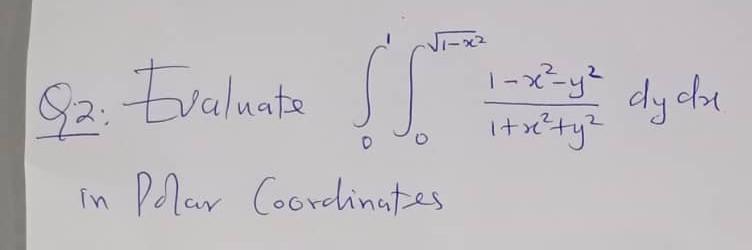 Q2: Evaluate ∫₀¹ ∫₀^√(1-x²) (1-x²-y²)/(1+x²+y²) dy dx
in Polar Coordinates